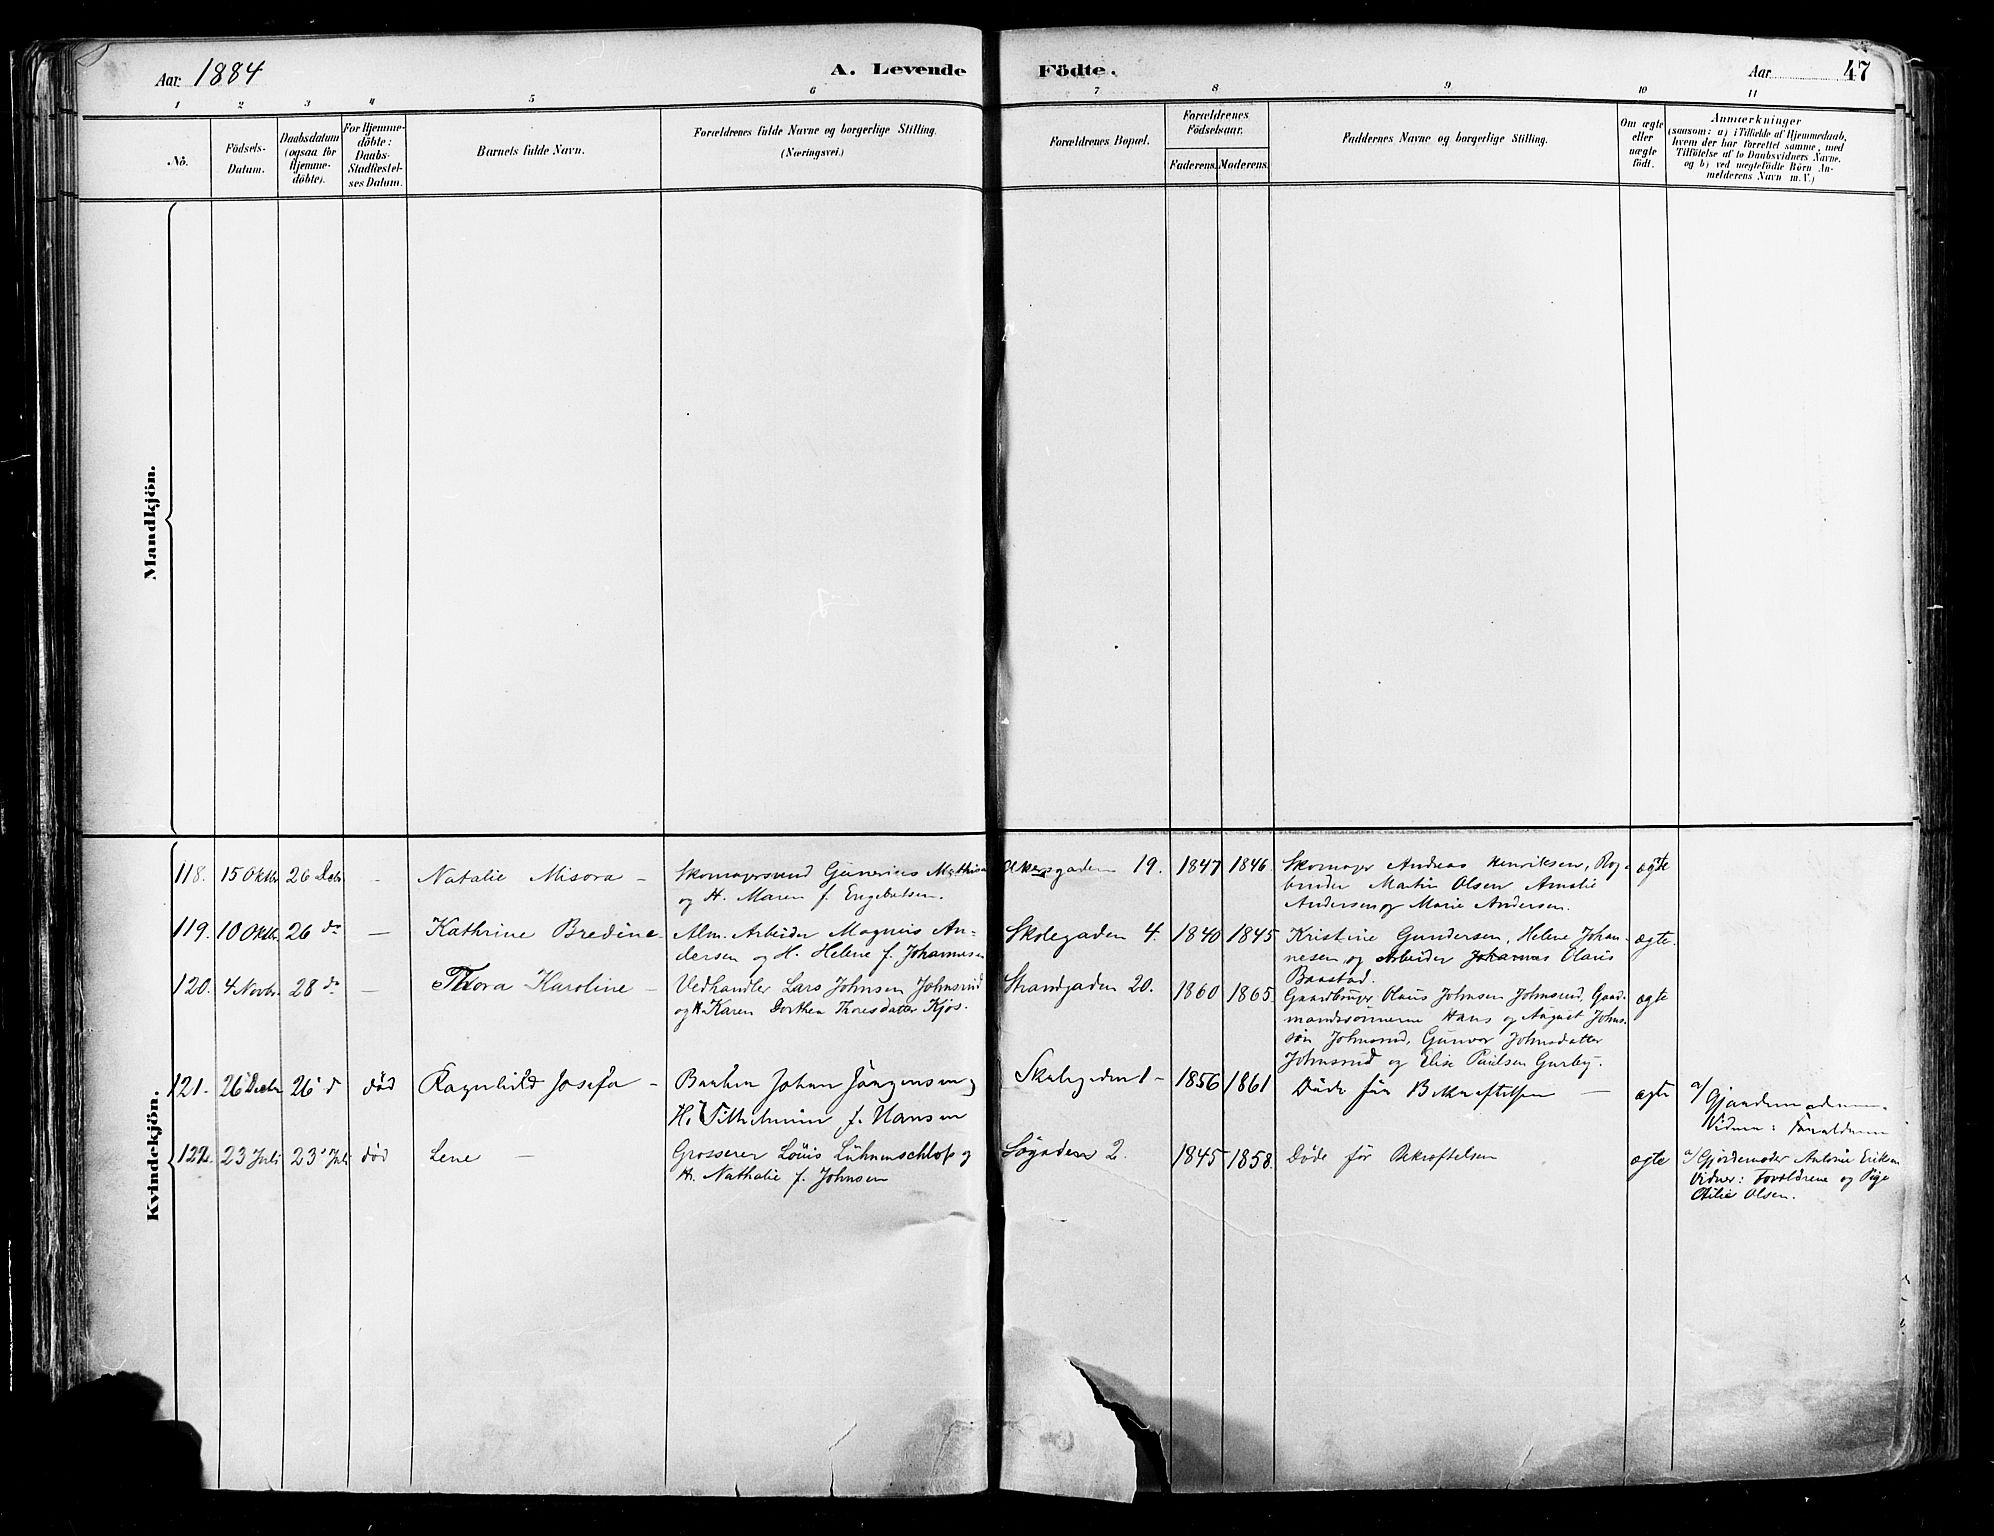 Aar 1884
A. Levende Födte.
Aar 47
1 2 3 4 5 6 7 8 9 10 11
No.
Födsels-Datum.
Daabsdatum (ogsaa for Hjemme-döbte).
For Hjemme-döbte: Daabs-Stadfæstel-ses Datum.
Barnets fulde Navn.
Forældrenes fulde Navne og borgerlige Stilling.
(Næringsvei.)
Forældrenes Bopæl.
Forældrenes Födselsaar.
Faderens. Moderens.
Faddernes Navne og borgerlige Stilling.
Om ægte eller uægte födt.
Anmærkninger
(saasom: a) i Tilfælde af Hjemmedaab,
hvem der har forrettet samme, med
Tilföielse af to Daabsvidners Navne.
og b) ved uegtefödte Börn An-
melderens Navn m.V.)
Mandkjön.
Kvindekjön.
118. 15 Oktbr 26 Decbr – Natalie Misora – Skomagersvend Gunerius Mathisen
og H. Maren f. Engebretsen.
Akersgaden 19. 1847 1846 Skomager Andreas Henriksen, Bog-
binder Martin Olsen Amalie
Andersen og Marie Andersen.
ægte
119. 10 Oktbr. 26 do – Kathrine Bredine – Alm. Arbeider Magnus An-
dersen og H. Helene f. Johannesen
Skolegaden 4. 1840 1845 Kristine Gundersen, Helene Johan-
nesen og Arbeider Johannes Olaus
Baastad.
ægte.
120. 4 Novbr. 28 do – Thora Karoline – Vedhandler Lars Johnsen Johnsrud
og H. Karen Dorthea Thoresdatter Kjos.
Strandgaden 20. 1860 1865. Gaardbruger Olaus Johnsen Johnsrud, Gaard-
mandssönnerne Hans og August John-
søn Johnsrud, Gunvor Johnsdatter
Johnsrud og Elise Paulsen Gurby.
ægte
121. 26 Decbr 26 d død Ragnhild Josefa – Johan Jörgensen og
H. Vilhelmine f. Hansen
Skolegaden 1 – 1856 1861 Döde før Bekræftelsen – ægte
a/ Gjordemoderen.
Vidner: Forældrene
122. 23 Juli 23 Juli død Lene – Grosserer Louis Lühnenschloss og
H. Nathalie f. Johnsen
Søgaden 2. 1845 1858. Döde før Bekræftelsen ægte
a/ Gjordemoder Antonie Eriksen
Vidner: Forældrene og Pige
Otilie Olsen.